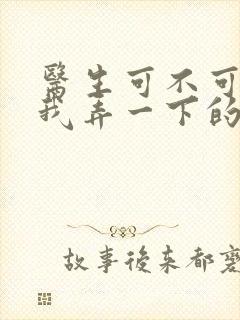 醫生可不可
我弄一下的
故事後来都